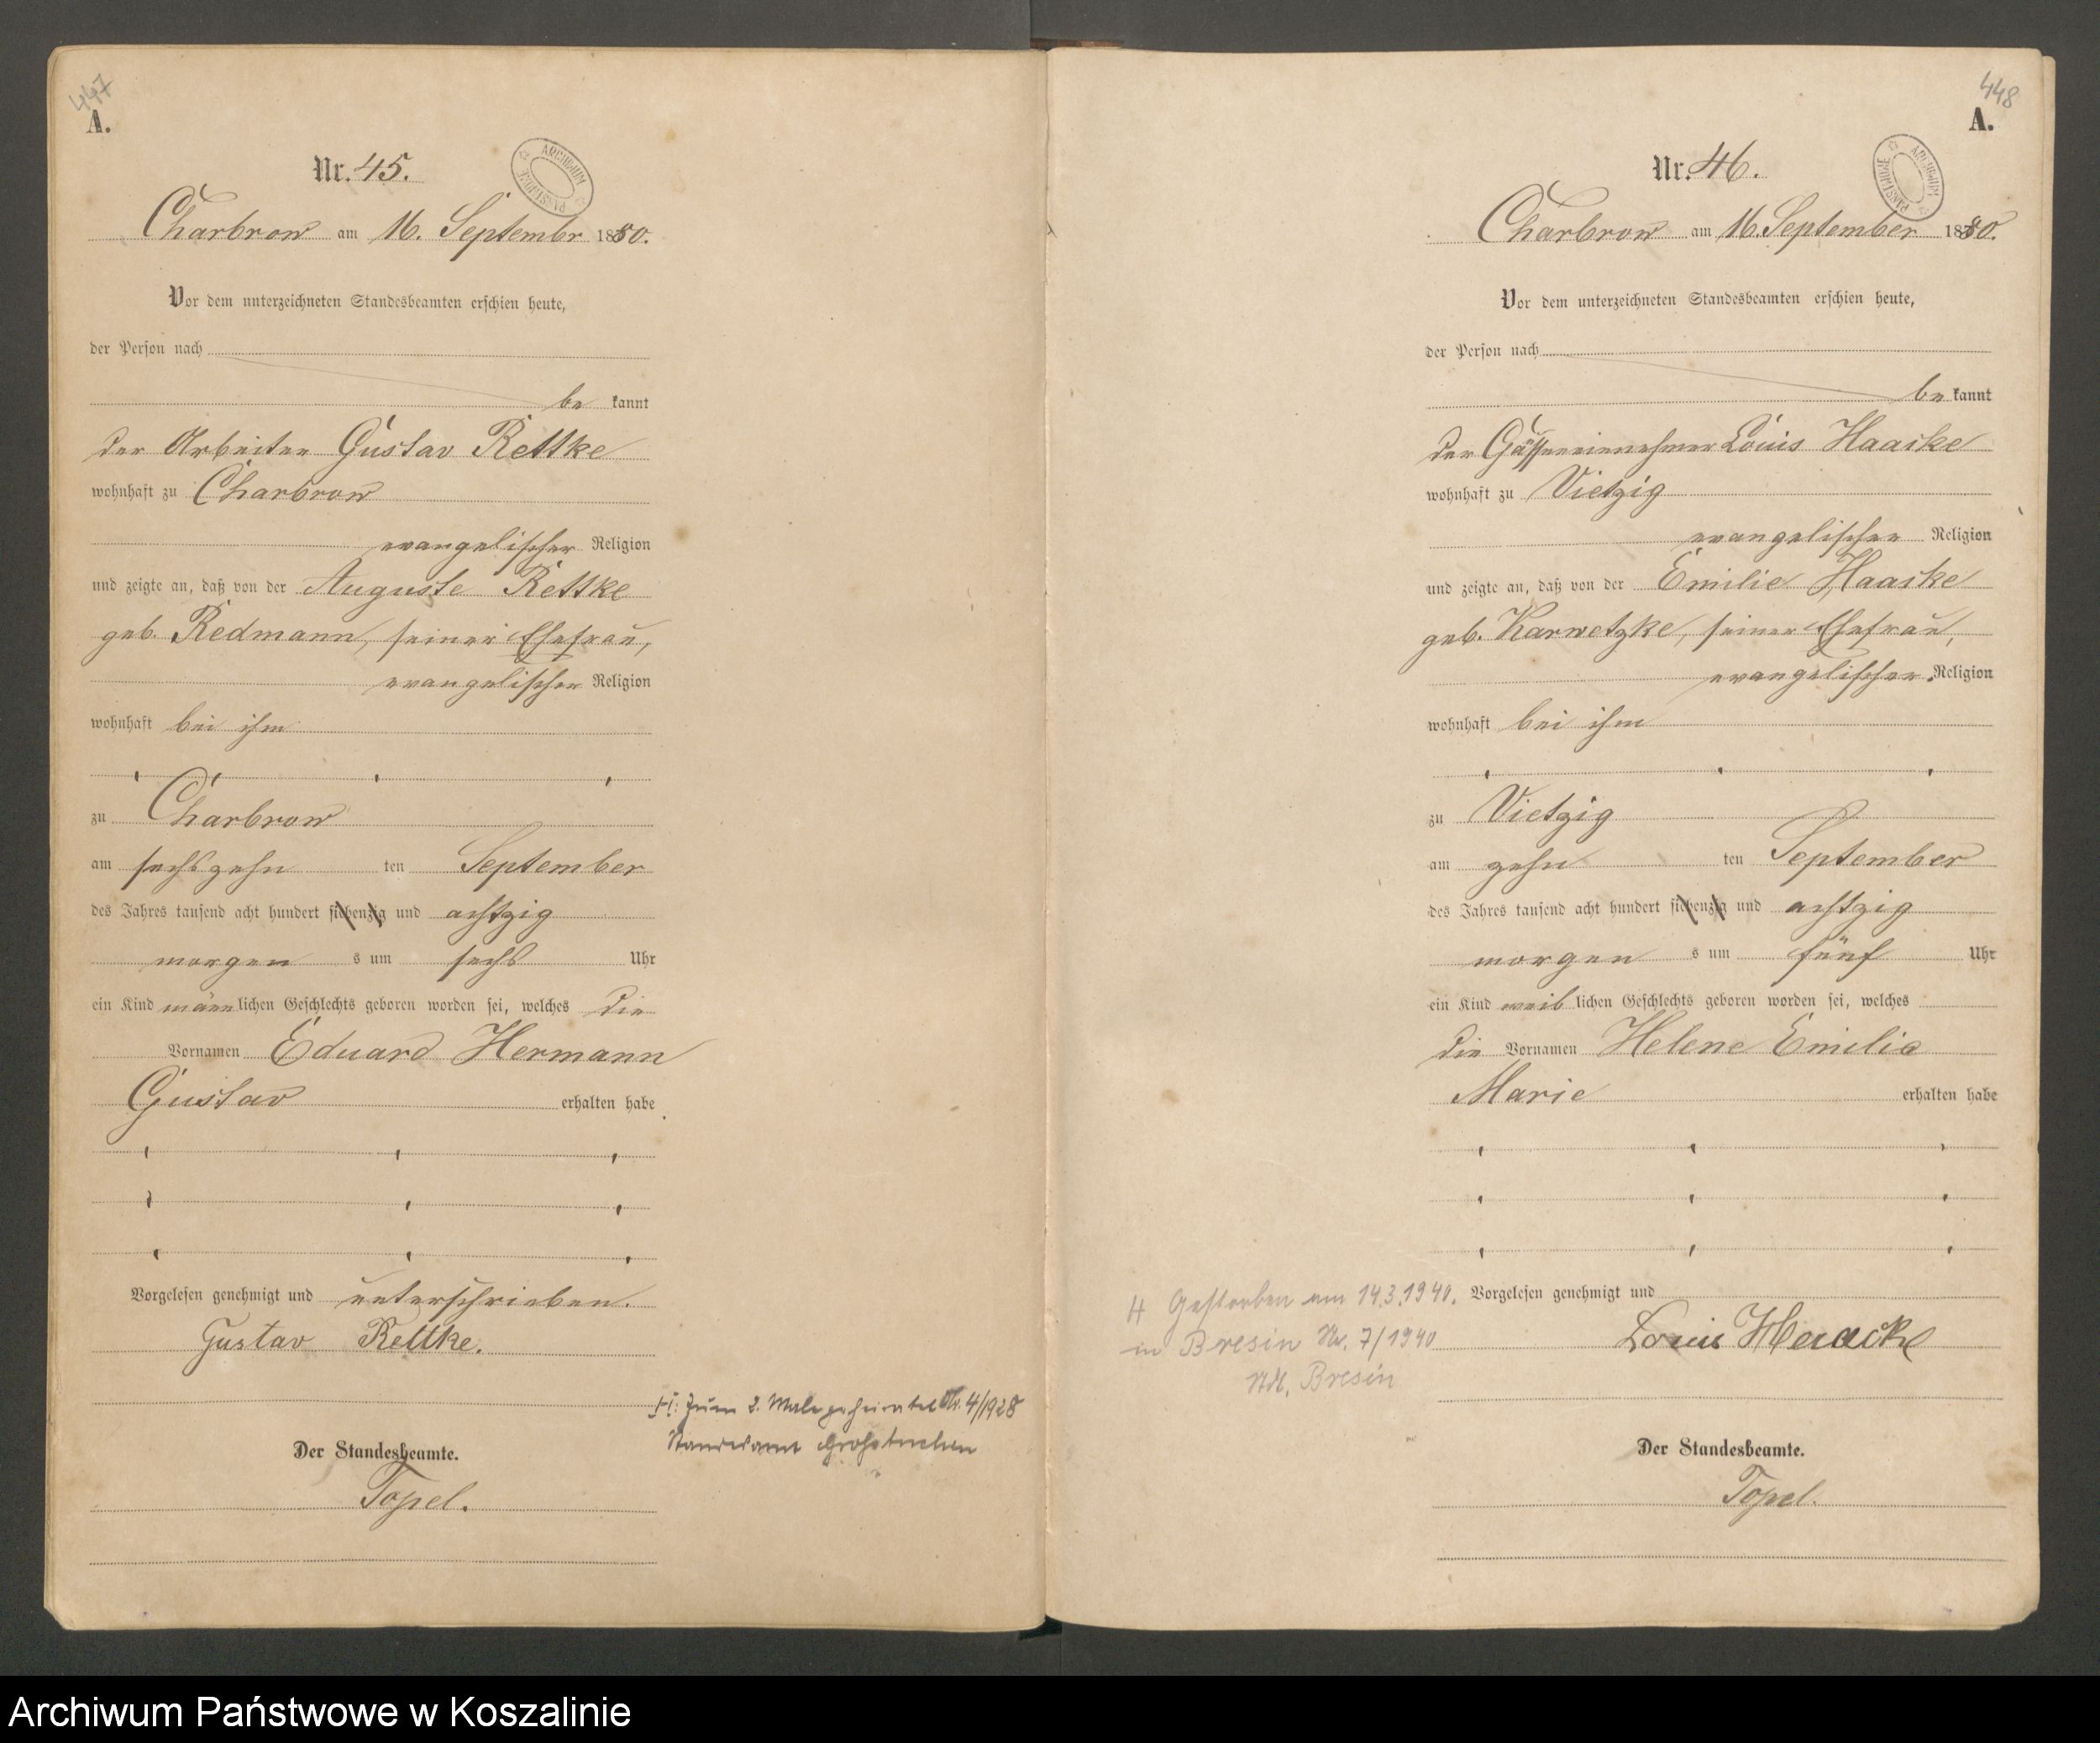 447
A.
Nr. 45.
ARCHIWUM PAŃSTWOWE
Charbrow am 16. Septembr 1880.
Vor dem unterzeichneten Standesbeamten erschien heute,
der Person nach
be kannt
der Arbeiter Gustav Rettke
wohnhaft zu Charbrow
evangelischer Religion
und zeigte an, daß von der Auguste Rettke
geb. Redmann, seiner Ehefrau,
evangelischer Religion
wohnhaft bei ihm
zu Charbrow
am sechszehn ten September
des Jahres tausend acht hundert siebenzig und achtzig
morgen s um sechs Uhr
ein Kind männlichen Geschlechts geboren worden sei, welches die
Vornamen Eduard Hermann
Gustav erhalten habe
Vorgelesen genehmigt und unterschrieben.
Gustav Rettke.
H: Zum 2. Male geheiratet Nr. 4/1928
Standesamt Großtuchen
Der Standesbeamte.
Topel.
448
A.
Nr. 46.
ARCHIWUM PAŃSTWOWE
Charbrow am 16. September 1880.
Vor dem unterzeichneten Standesbeamten erschien heute,
der Person nach
be kannt
der Louis Haaske
wohnhaft zu Vietzig
evangelischer Religion
und zeigte an, daß von der Emilie Haaske
geb. Karwetzke, seiner Ehefrau,
evangelischer Religion
wohnhaft bei ihm
zu Vietzig
am zehn ten September
des Jahres tausend acht hundert siebenzig und achtzig
morgen s um fünf Uhr
ein Kind weib lichen Geschlechts geboren worden sei, welches
die Vornamen Helene Emilie
Marie erhalten habe
Vorgelesen genehmigt und
Louis
H Gestorben am 14.3.1940.
in Bresin Nr. 7/1940
Bresin
Der Standesbeamte.
Topel.
Archiwum Państwowe w Koszalinie